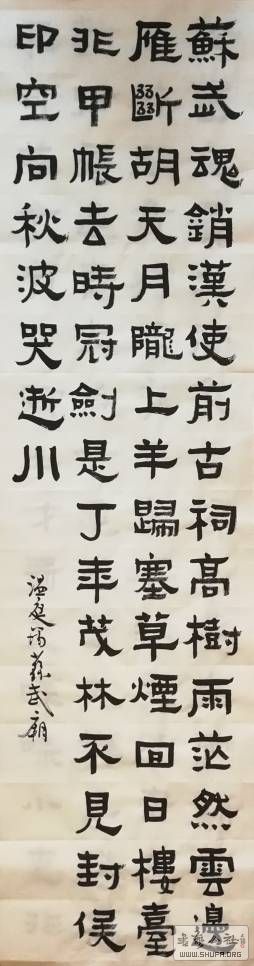 蘇武魂銷漢使前古祠高樹雨茫然雲邊
雁斷胡天月隴上羊歸塞草煙回日樓臺
非甲帳去時冠劍是丁年茂林不見封侯
印空向秋波哭逝川
温庭筠蘇武廟
WWW.SHUFA.ORG